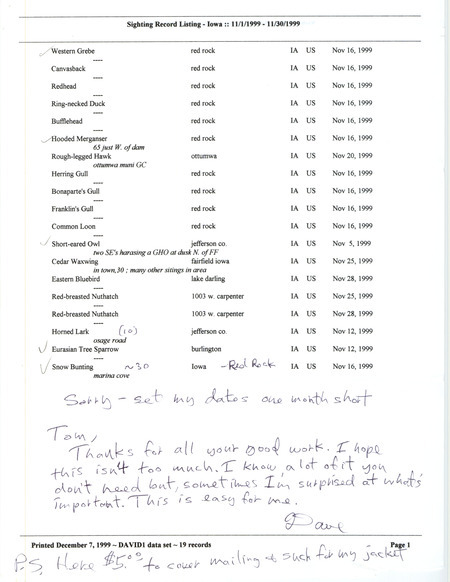 Sighting Record Listing - Iowa :: 11/1/1999 - 11/30/1999
Western Grebe red rock IA US Nov 16, 1999
----
Canvasback red rock IA US Nov 16, 1999
----
Redhead red rock IA US Nov 16, 1999
----
Ring-necked Duck red rock IA US Nov 16, 1999
----
Bufflehead red rock IA US Nov 16, 1999
----
Hooded Merganser red rock IA US Nov 16, 1999
65 just W. of dam
Rough-legged Hawk ottumwa IA US Nov 20, 1999
ottumwa muni GC
Herring Gull red rock IA US Nov 16, 1999
----
Bonaparte's Gull red rock IA US Nov 16, 1999
----
Franklin's Gull red rock IA US Nov 16, 1999
----
Common Loon red rock IA US Nov 16, 1999
----
Short-eared Owl jefferson co. IA US Nov 5, 1999
two SE's harasing a GHO at dusk N. of FF
Cedar Waxwing fairfield iowa IA US Nov 25, 1999
in town,30 ; many other sitings in area
Eastern Bluebird lake darling IA US Nov 28, 1999
----
Red-breasted Nuthatch 1003 w. carpenter IA US Nov 25, 1999
----
Red-breasted Nuthatch 1003 w. carpenter IA US Nov 28, 1999
----
Horned Lark (10) jefferson co. IA US Nov 12, 1999
osage road
Eurasian Tree Sparrow burlington IA US Nov 12, 1999
----
Snow Bunting ~30 Iowa - Red Rock IA US Nov 16, 1999
marina cove
Sorry - set my dates one month short
Tom,
Thanks for all your good work. I hope
this isn't too much. I know a lot of it you
don't need but, sometimes I'm surprised at what's
important. This is easy for me.
Dave
Printed December 7, 1999 ~ DAVID1 data set ~ 19 records Page 1
P.S. Here $5.00 to cover mailing & such for my jacket